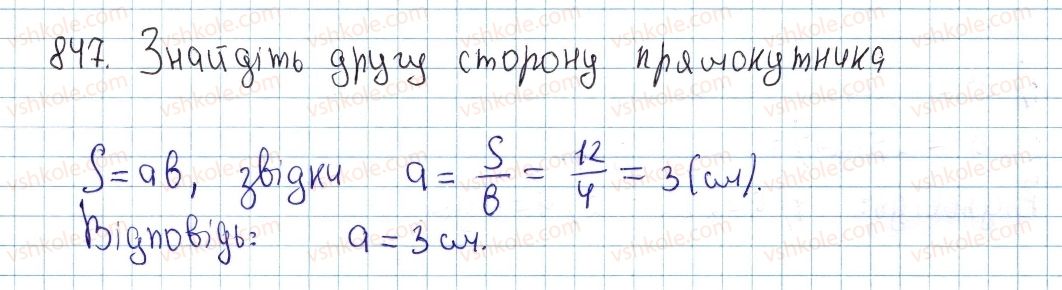 847. Знайдіть другу сторону прямокутника
S = ab, звідки a = S/b = 12/4 = 3 (см).
Відповідь: a = 3 см.